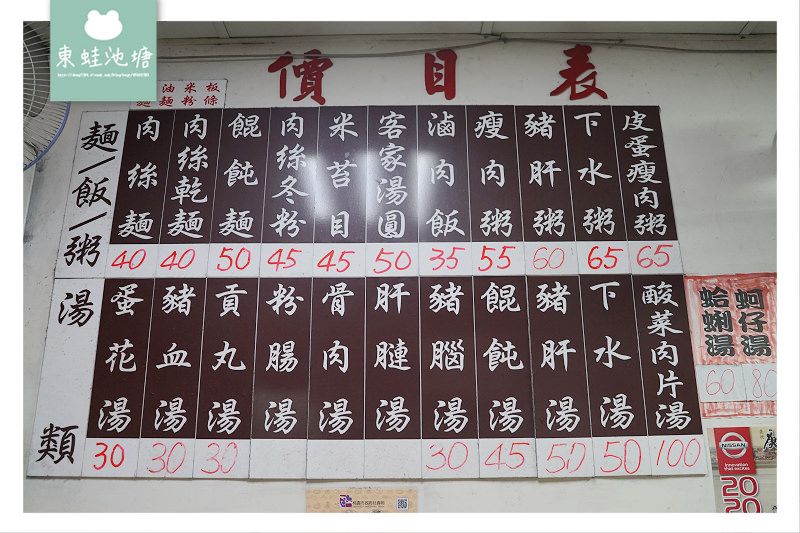 東蛙池塘
價目表
油 米 板
麵 麵 粉 條
麵/飯/粥
肉絲麵 40
肉絲乾麵 40
餛飩麵 50
肉絲冬粉 45
米苔目 45
客家湯圓 50
滷肉飯 35
瘦肉粥 55
豬肝粥 60
下水粥 65
皮蛋瘦肉粥 65
湯類
蛋花湯 30
豬血湯 30
貢丸湯 30
粉腸湯
骨肉湯
肝膢湯
豬腦湯 30
餛飩湯 45
豬肝湯 50
下水湯 50
酸菜肉片湯 100
蛤蜊湯 60
蚵仔湯 80
NISSAN
Innovation
that excites
20
20
康